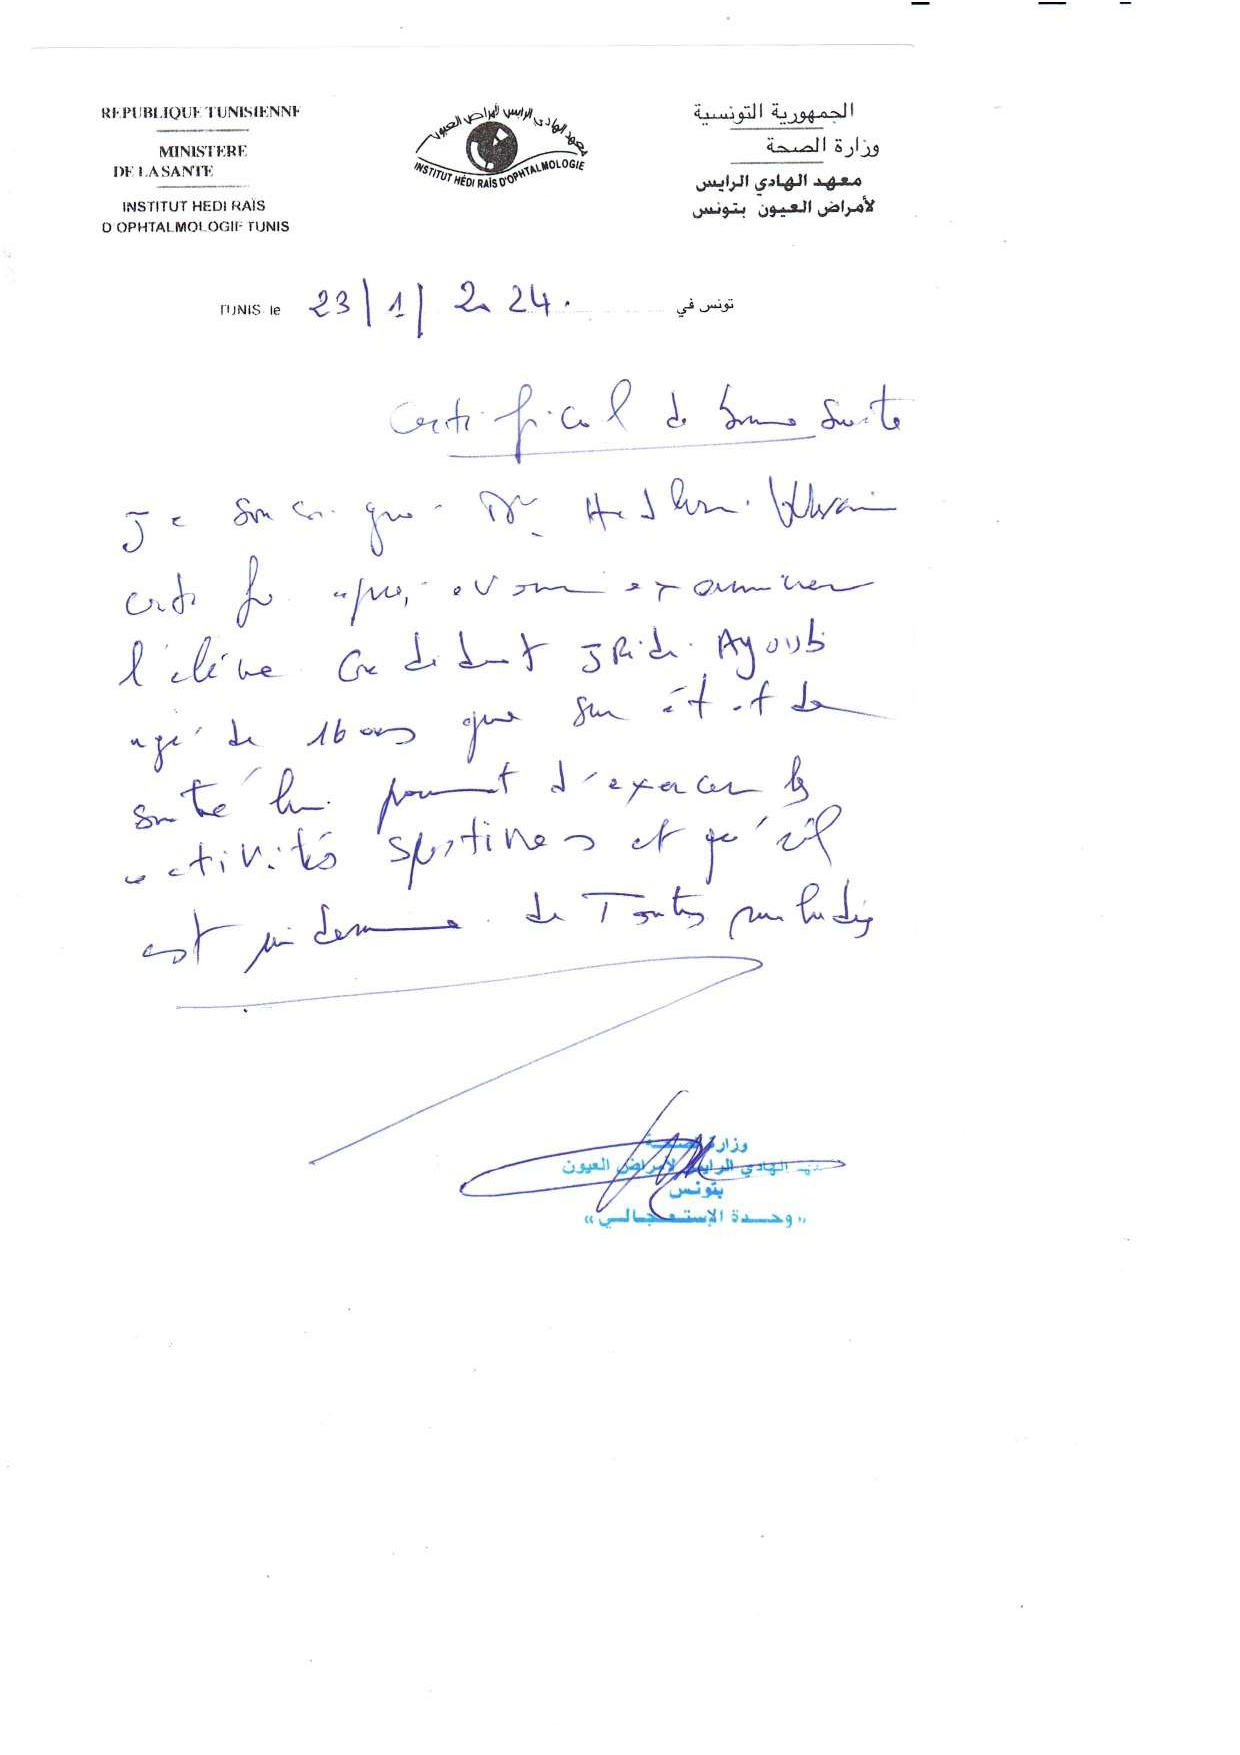 REPUBLIQUE TUNISIENNE
MINISTERE
DE LA SANTE
INSTITUT HEDI RAIS
D OPHTALMOLOGIE TUNIS
معهد الهادي الرايس لأمراض العيون
INSTITUT HÉDI RAÏS D'OPHTALMOLOGIE
الجمهورية التونسية
وزارة الصحة
معهد الهادي الرايس
لأمراض العيون بتونس
TUNIS le 23/1/2024. تونس في
Certificat de bonne santé
Je soussigné Dr
certifie après avoir examiner
l'élève candidat JRidi Ayoub
agé de 16 ans que son état de
santé lui permet d'exercer les
activités sportives et qu'il
est indemne de Toutes maladies
وزارة الصحة
معهد الهادي الرايس لأمراض العيون
بتونس
«وحدة الإستعجالي»